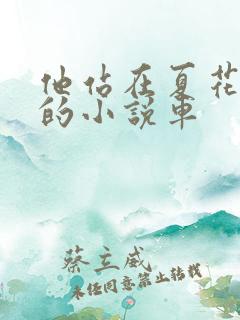 他站在夏花
的小说车
蔡立威
未经同意禁止转载